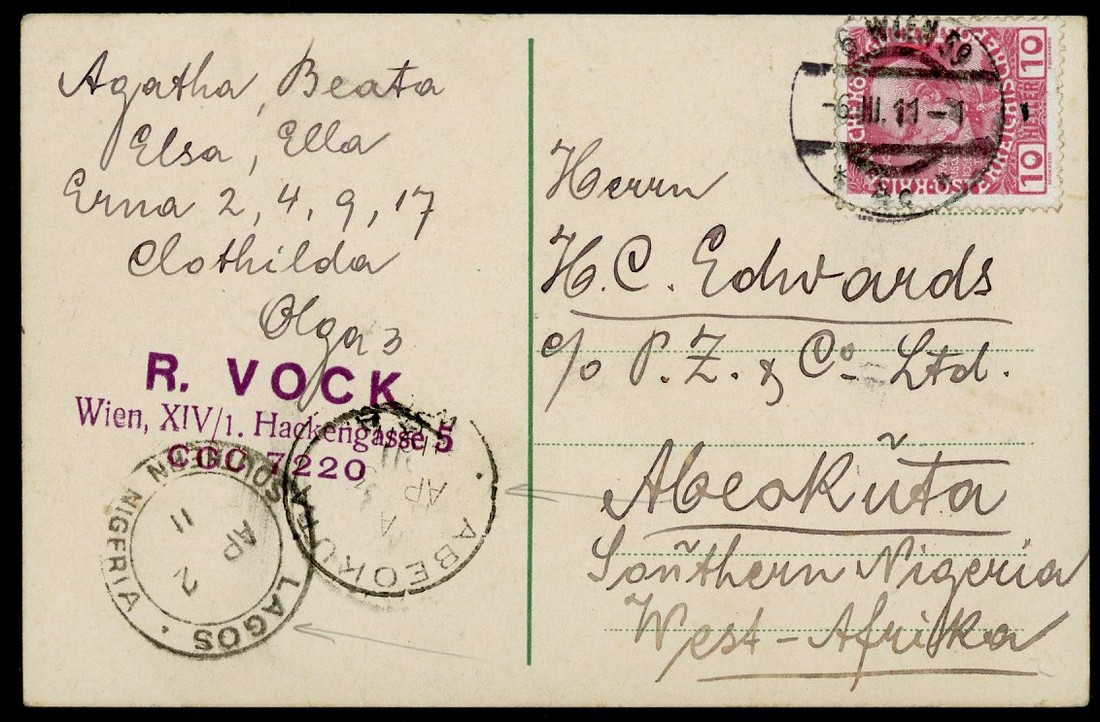 Agatha, Beata
Elsa, Ella
Erna 2, 4, 9, 17
Clothilda
Olga 3
R. VOCK
Wien, XIV/1. Hackengasse 5
CGC 7220
LAGOS · SOUTHERN NIGERIA
2
AP
11
ABEOKUTA
A
AP 3
6 WIEN
-6.III.11-
* *
10 HELLER 10
Herrn
H. C. Edwards
c/o P. Z. & Co Ltd.
Abeokŭta
Soŭthern Nigeria
West-Afrika